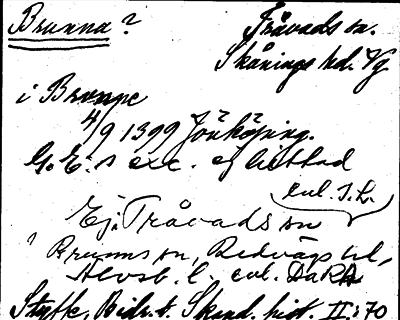 Brunna?
Tråvads sn.
Skånings hd. Vg.
i Brunne
4/9 1399 Jönköping.
G. E:s exc. ej hittad
enl. I. L.
Ej. Tråvads sn
Brunns sn, Redvägs hd,
Älvsb. l. enl. DaRA
Styffe, Bidr. t. Skand. hist. II:70